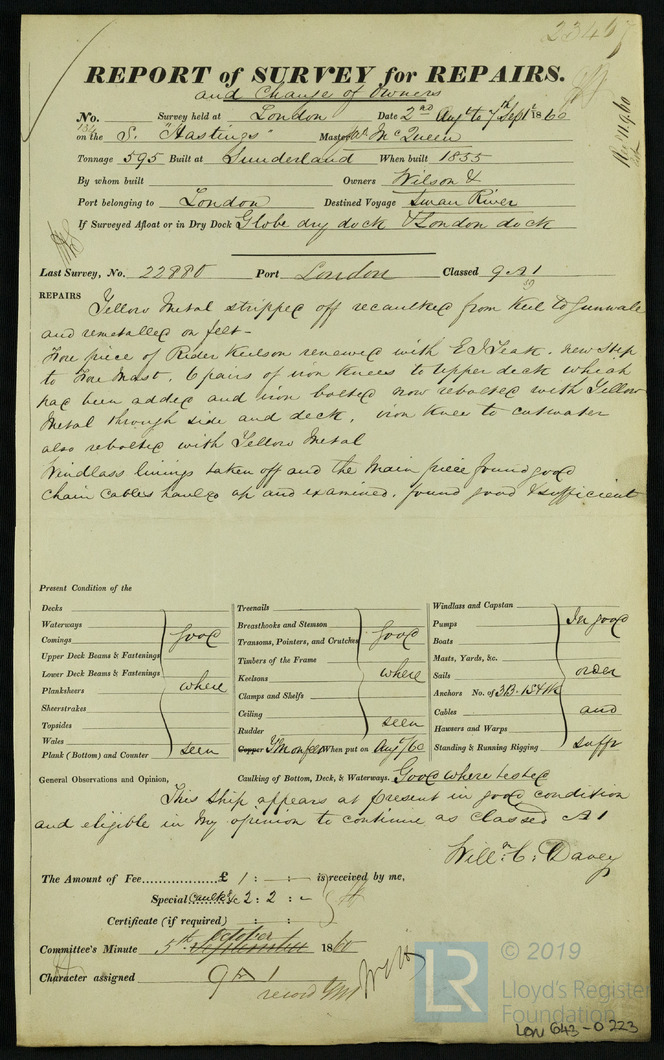 23467
REPORT of SURVEY for REPAIRS.
and Change of Owners
No. Survey held at London Date 2nd Augt to 7th Septr 1860
on the S. "Hastings" Master Wm McQueen
Tonnage 595 Built at Sunderland When built 1855
By whom built Owners Wilson &
Port belonging to London Destined Voyage Swan River
If Surveyed Afloat or in Dry Dock Globe dry dock & London dock
Rec 11.9.60
Last Survey, No. 22880 Port London Classed 9 A 1
REPAIRS Yellow Metal stripped off recaulked from Keel to Gunwale
and remetalled on felt -
Fore piece of Rider Keelson renewed with E I Teak. new step
to Fore Mast. 6 pairs of iron Knees to upper deck which
had been added and iron bolted now rebolted with Yellow
Metal through side and deck, iron Knee to cutwater
also rebolted with Yellow Metal
Windlass linings taken off and the Main piece found good
Chain Cables hauled up and examined, found good & sufficient
Present Condition of the
Decks
Waterways
Comings good
Upper Deck Beams & Fastenings
Lower Deck Beams & Fastenings
Planksheers where
Sheerstrakes
Topsides
Wales
Plank (Bottom) and Counter seen
Treenails
Breasthooks and Stemson
Transoms, Pointers, and Crutches good
Timbers of the Frame
Keelsons where
Clamps and Shelfs
Ceiling
Rudder seen
Copper YM on felt When put on Augt/60
Windlass and Capstan
Pumps In good
Boats
Masts, Yards, &c.
Sails order
Anchors No. of 3B. 1S
Cables and
Hawsers and Warps
Standing & Running Rigging sufft
General Observations and Opinion, Caulking of Bottom, Deck, & Waterways. Good where tested
This Ship appears at present in good condition
and eligible in my opinion to continue as Classed A 1
Willm. C. Davey
The Amount of Fee £ 1 : - : - is received by me,
Special Caulkg &c 2 : 2 : -
Certificate (if required) : :
Committee's Minute 5th September October 1860
Character assigned 9 A 1
record YM
LR
© 2019
Lloyd's Register
Foundation
LON 643-0223